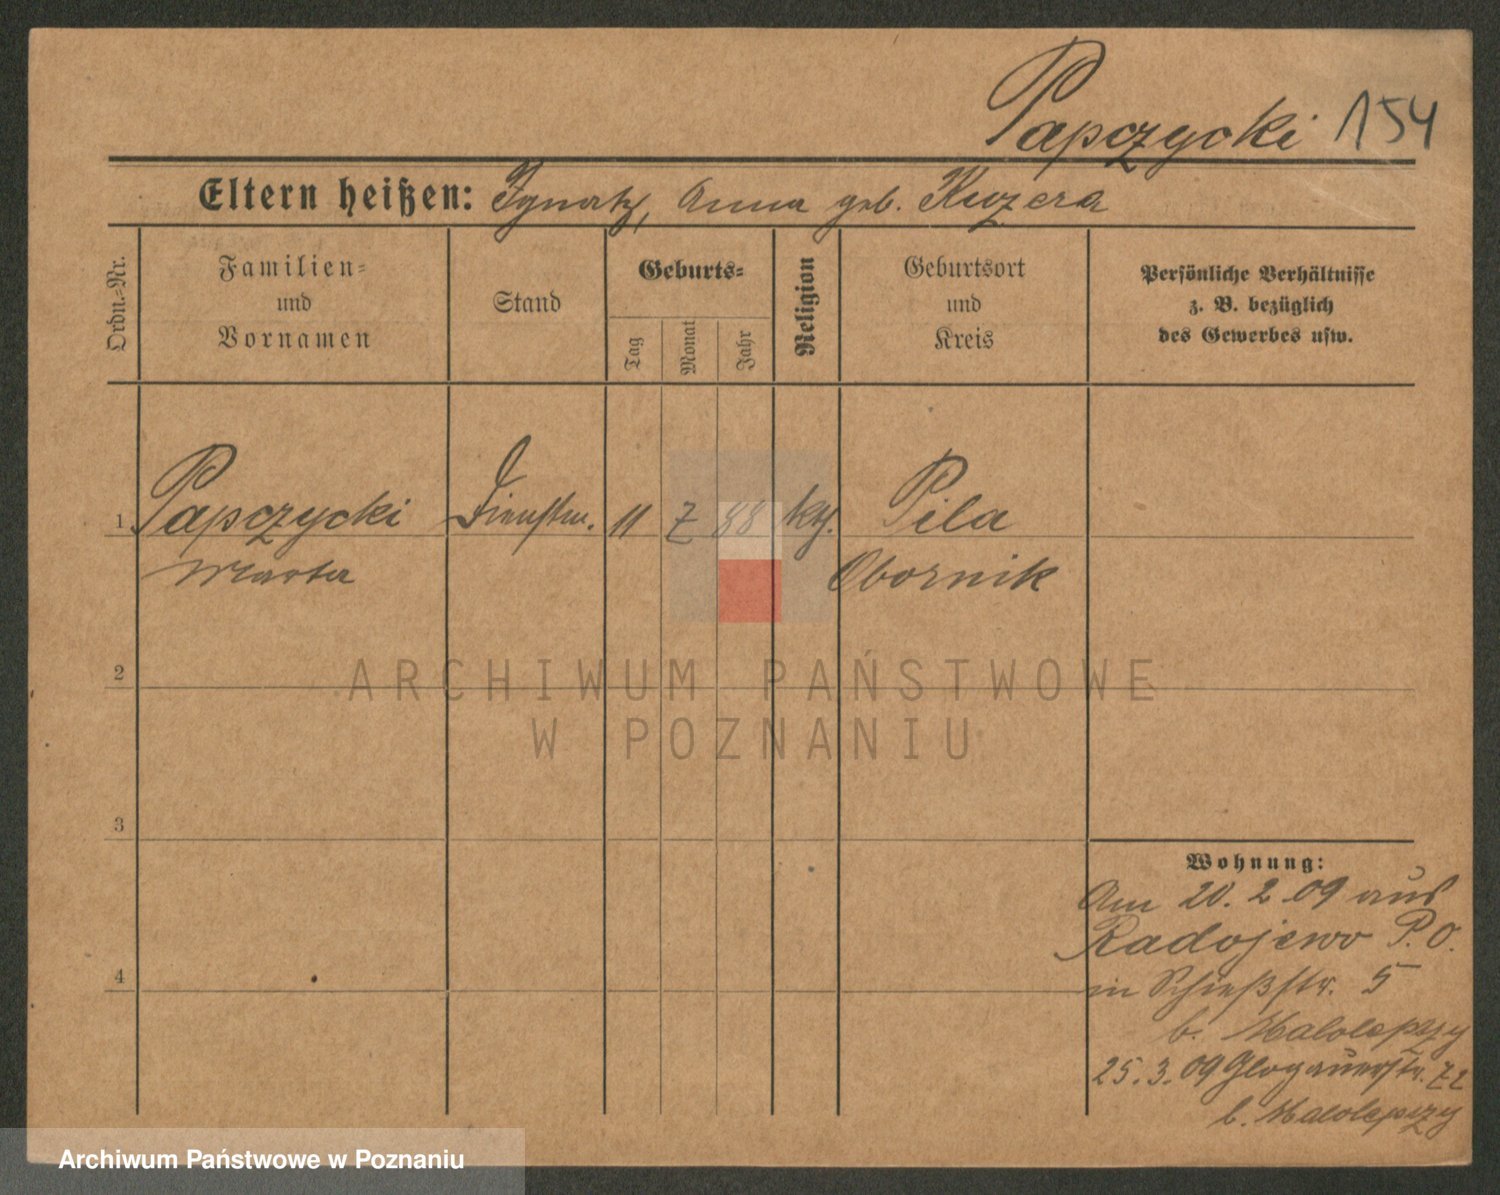 Papczycki 154
Eltern heißen: Ignatz, Anna geb. Kuzera
Ordn.-Nr.
Familien-
und
Vornamen
Stand
Geburts-
Tag
Monat
Jahr
Religion
Geburtsort
und
Kreis
Persönliche Verhältnisse
z. B. bezüglich
des Gewerbes usw.
1 Papczycki Dienstm. 11 7 88 kth. Pila
Marta Obornik
2
3
4
Wohnung:
Am 20.2.09 aus
Radojewo P.O.
in Schießstr. 5
b. Malolepszy
25.3.09 Glogauerstr. 72
b. Malolepszy
ARCHIWUM PAŃSTWOWE
W POZNANIU
Archiwum Państwowe w Poznaniu